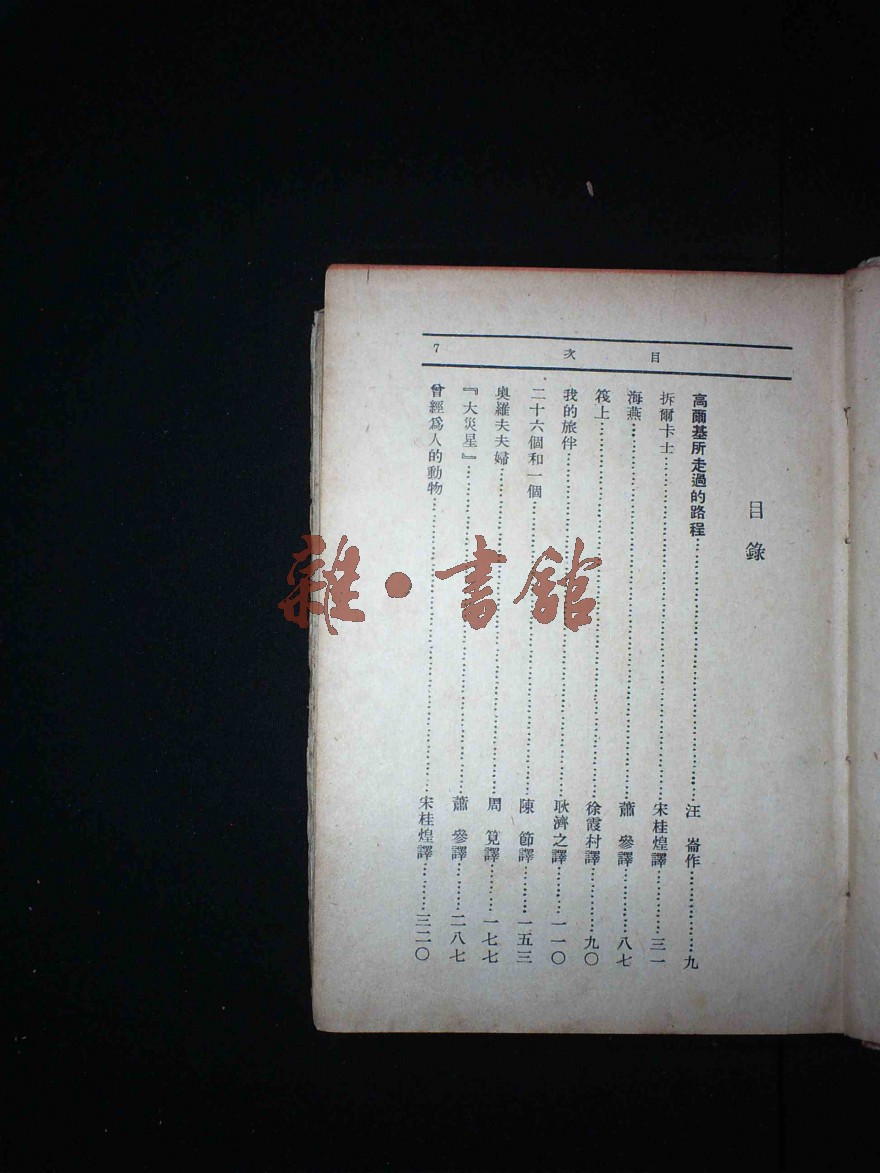 目次
7
目錄
高爾基所走過的路程……汪崙作……九
拆爾卡士……宋桂煌譯……三一
海燕……蕭參譯……八七
筏上……徐霞村譯……九〇
我的旅伴……耿濟之譯……一一〇
二十六個和一個……陳節譯……一五三
奧羅夫夫婦……周筧譯……一七七
『大災星』……蕭參譯……二八七
曾經爲人的動物……宋桂煌譯……三二〇
雜·書館